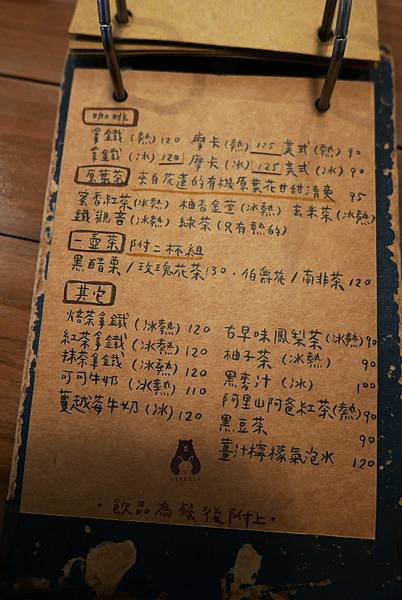 咖啡
拿鐵(熱)120 摩卡(熱)125 美式(熱)90
拿鐵(冰)120 摩卡(冰)125 美式(冰)90
原葉茶 來自花蓮的有機原葉花甘甜清爽 95
蜜香紅茶(冰熱) 柚香金萱(冰熱) 玄米茶(冰熱)
鐵觀音(冰熱) 綠茶(只有熱的)
一壺茶 附二杯組
黑醋栗/玫瑰花茶130·伯爵花/南非茶120
其它
焙茶拿鐵(冰熱)120
紅茶拿鐵(冰熱)120
抹茶拿鐵(冰熱)120
可可牛奶(冰熱)110
蔓越莓牛奶(冰)120
古早味鳳梨茶(冰熱)90
柚子茶(冰熱) 90
黑麥汁(冰) 100
阿里山阿爸紅茶(熱)90
黑豆茶 90
薑汁檸檬氣泡水 120
·飲品為餐後附上·